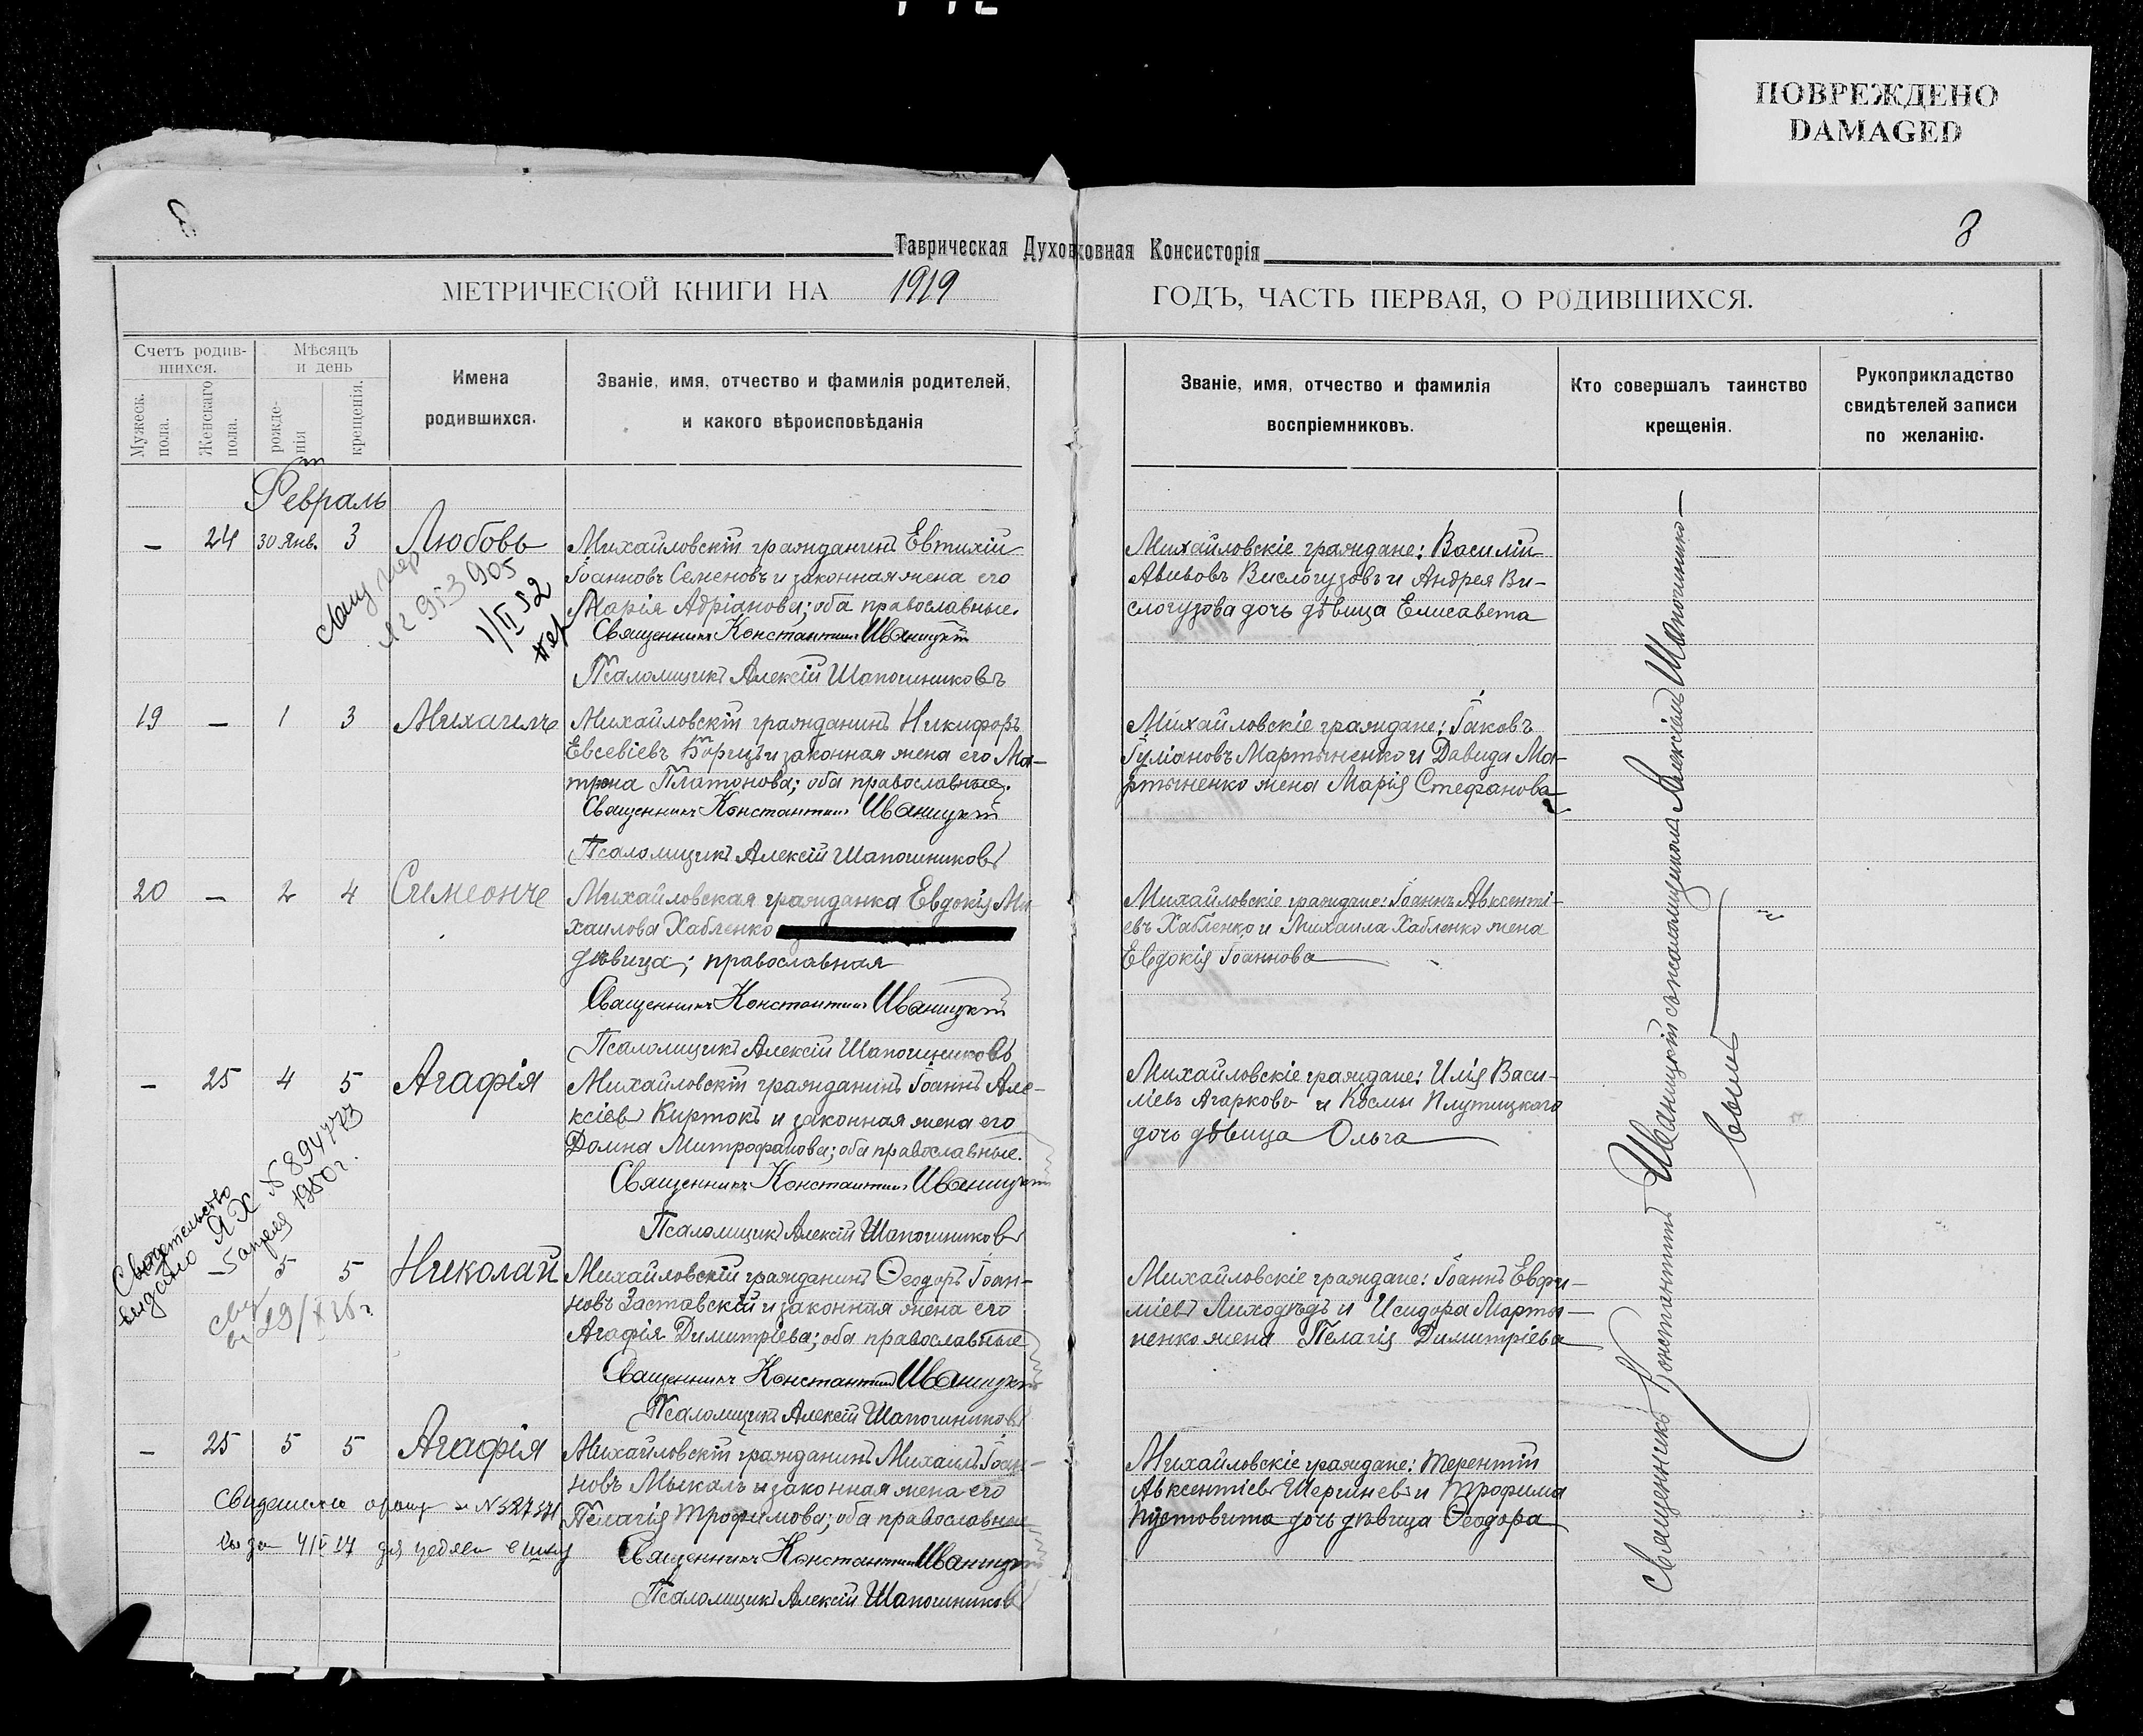 ПОВРЕЖДЕНО
DAMAGED
8
Таврическая Духовная Консисторія
МЕТРИЧЕСКОЙ КНИГИ НА 1919 ГОДЪ, ЧАСТЬ ПЕРВАЯ, О РОДИВШИХСЯ.
Счетъ родив-
шихся.
Мужеск.
пола.
Женскаго
пола.
Мѣсяцъ
и день
рожде-
нія
крещенія.
Имена
родившихся.
Званіе, имя, отчество и фамилія родителей,
и какого вѣроисповѣданія
Званіе, имя, отчество и фамилія
воспріемниковъ.
Кто совершалъ таинство
крещенія.
Рукоприкладство
свидѣтелей записи
по желанію.
Февраль
— 24 30 Янв. 3 Любовь
Михайловскій гражданинъ Евтихій
Іоанновъ Семеновъ и законная жена его
Марія Адріанова; оба православные.
Священникъ Константинъ Иваницкій
Псаломщикъ Алексій Шапошниковъ
Михайловскіе граждане: Василій
Авивовъ Вислогузовъ и Андрея Ви-
слогузова дочь дѣвица Елисавета
№ 953905
1/II 52
19 — 1 3 Михаилъ
Михайловскій гражданинъ Никифоръ
Евсевіевъ Борицъ и законная жена его Ма-
трона Платонова; оба православные.
Священникъ Константинъ Иваницкій
Псаломщикъ Алексій Шапошниковъ
Михайловскіе граждане: Іаковъ
Іуліановъ Мартыненко и Давида Ма-
ртыненко жена Марія Стефанова
20 — 2 4 Симеонъ
Михайловская гражданка Евдокія Ми-
хаилова Хабленко
дѣвица; православная
Священникъ Константинъ Иваницкій
Псаломщикъ Алексій Шапошниковъ
Михайловскіе граждане: Іоаннъ Авксенті-
евъ Хабленко и Михаила Хабленко жена
Евдокія Іоаннова
— 25 4 5 Агафія
Михайловскій гражданинъ Іоаннъ Але-
ксіевъ Киртокъ и законная жена его
Домна Митрофанова; оба православные.
Священникъ Константинъ Иваницкій
Псаломщикъ Алексій Шапошниковъ
Михайловскіе граждане: Илія Васи-
ліевъ Агарковъ и Космы Плутицкого
дочь дѣвица Ольга
Свидетельство
выдано ЯХ № 894773
5 апреля 1950 г.
5 5 Николай
Михайловскій гражданинъ Ѳеодоръ Іоан-
новъ Заставскій и законная жена его
Агафія Димитріева; оба православные
Священникъ Константинъ Иваницкій
Псаломщикъ Алексій Шапошниковъ
Михайловскіе граждане: Іоаннъ Евфи-
міевъ Лиходѣдъ и Исидора Марты-
ненко жена Пелагія Димитріева
— 25 5 5 Агафія
Михайловскій гражданинъ Михаилъ Іоан-
новъ Мыкалъ и законная жена его
Пелагія Трофимова; оба православные
Священникъ Константинъ Иваницкій
Псаломщикъ Алексій Шапошниковъ
Михайловскіе граждане: Терентій
Авксентіевъ Шершневъ и Трофима
Пустовита дочь дѣвица Ѳеодора
Священникъ Константинъ Иваницкій съ псаломщикомъ Алексіемъ Шапошнико-
вымъ